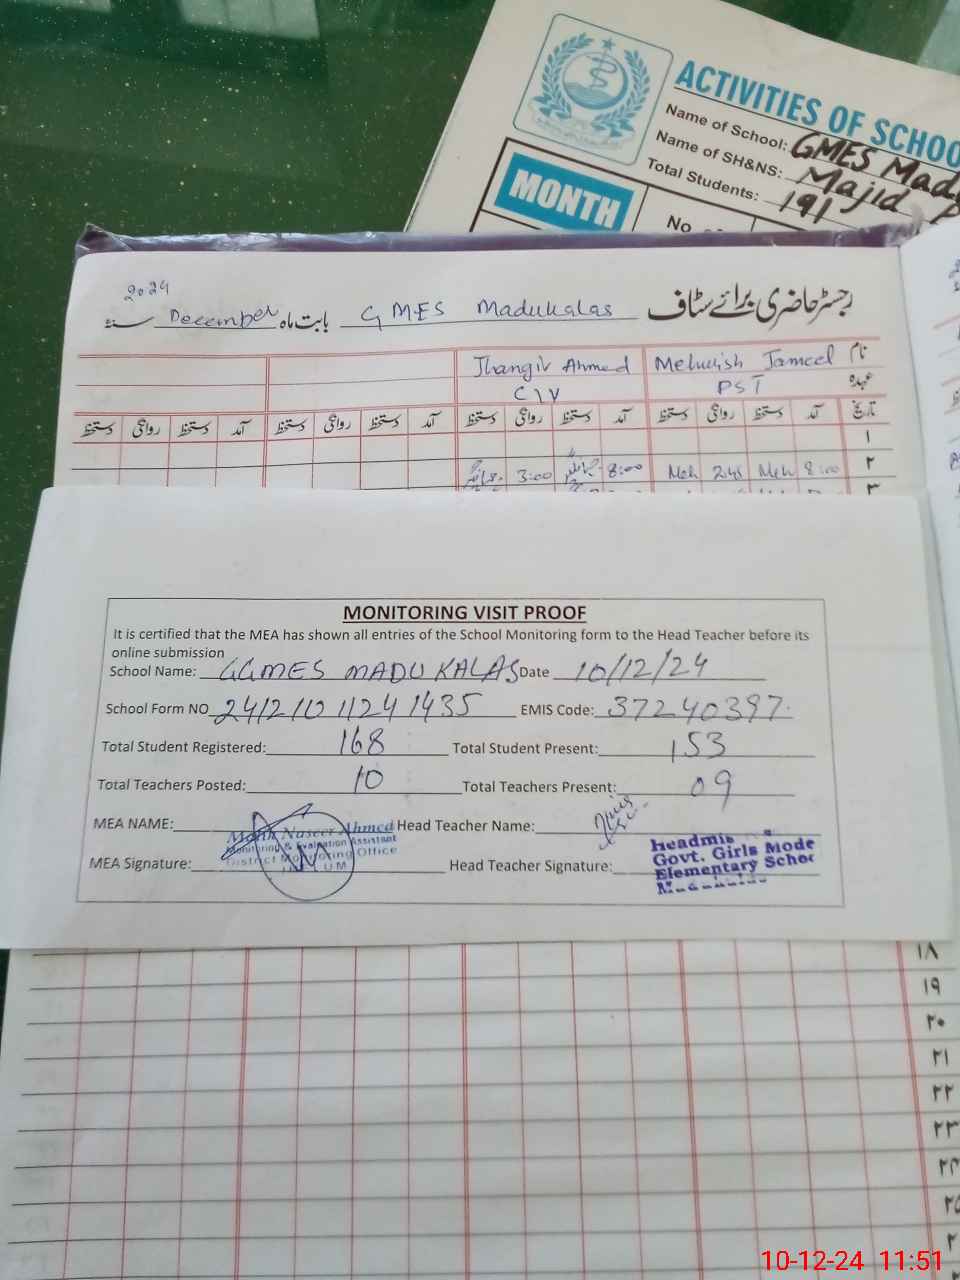 ACTIVITIES OF SCHOO
Name of School: GMES Madu
Name of SH&NS: Majid
Total Students: 191
MONTH
No
2024
رجسٹر حاضری برائے سٹاف GMES Madukalas بابت ماہ December سنہ
نام Mehwish Jameel Jhangir Ahmed
عہدہ PST C/V
تاریخ آمد دستخط روانگی دستخط آمد دستخط روانگی دستخط آمد دستخط روانگی دستخط آمد دستخط روانگی دستخط
۱
۲ 8:00 Meh 2:45 Meh 8:00 3:00
۳
MONITORING VISIT PROOF
It is certified that the MEA has shown all entries of the School Monitoring form to the Head Teacher before its
online submission
School Name: GGMES MADU KALAS Date 10/12/24
School Form NO 24121011241435 EMIS Code: 37240397.
Total Student Registered: 168 Total Student Present: 153
Total Teachers Posted: 10 Total Teachers Present: 09
MEA NAME: Head Teacher Name:
Malik Naseer Ahmed
Monitoring & Evaluation Assistant
District Monitoring Office
MEA Signature: Head Teacher Signature:
Headmis
Govt. Girls Mode
Elementary School
۱۸
۱۹
۲۰
۲۱
۲۲
۲۳
۲۴
۲۵
10-12-24 11:51